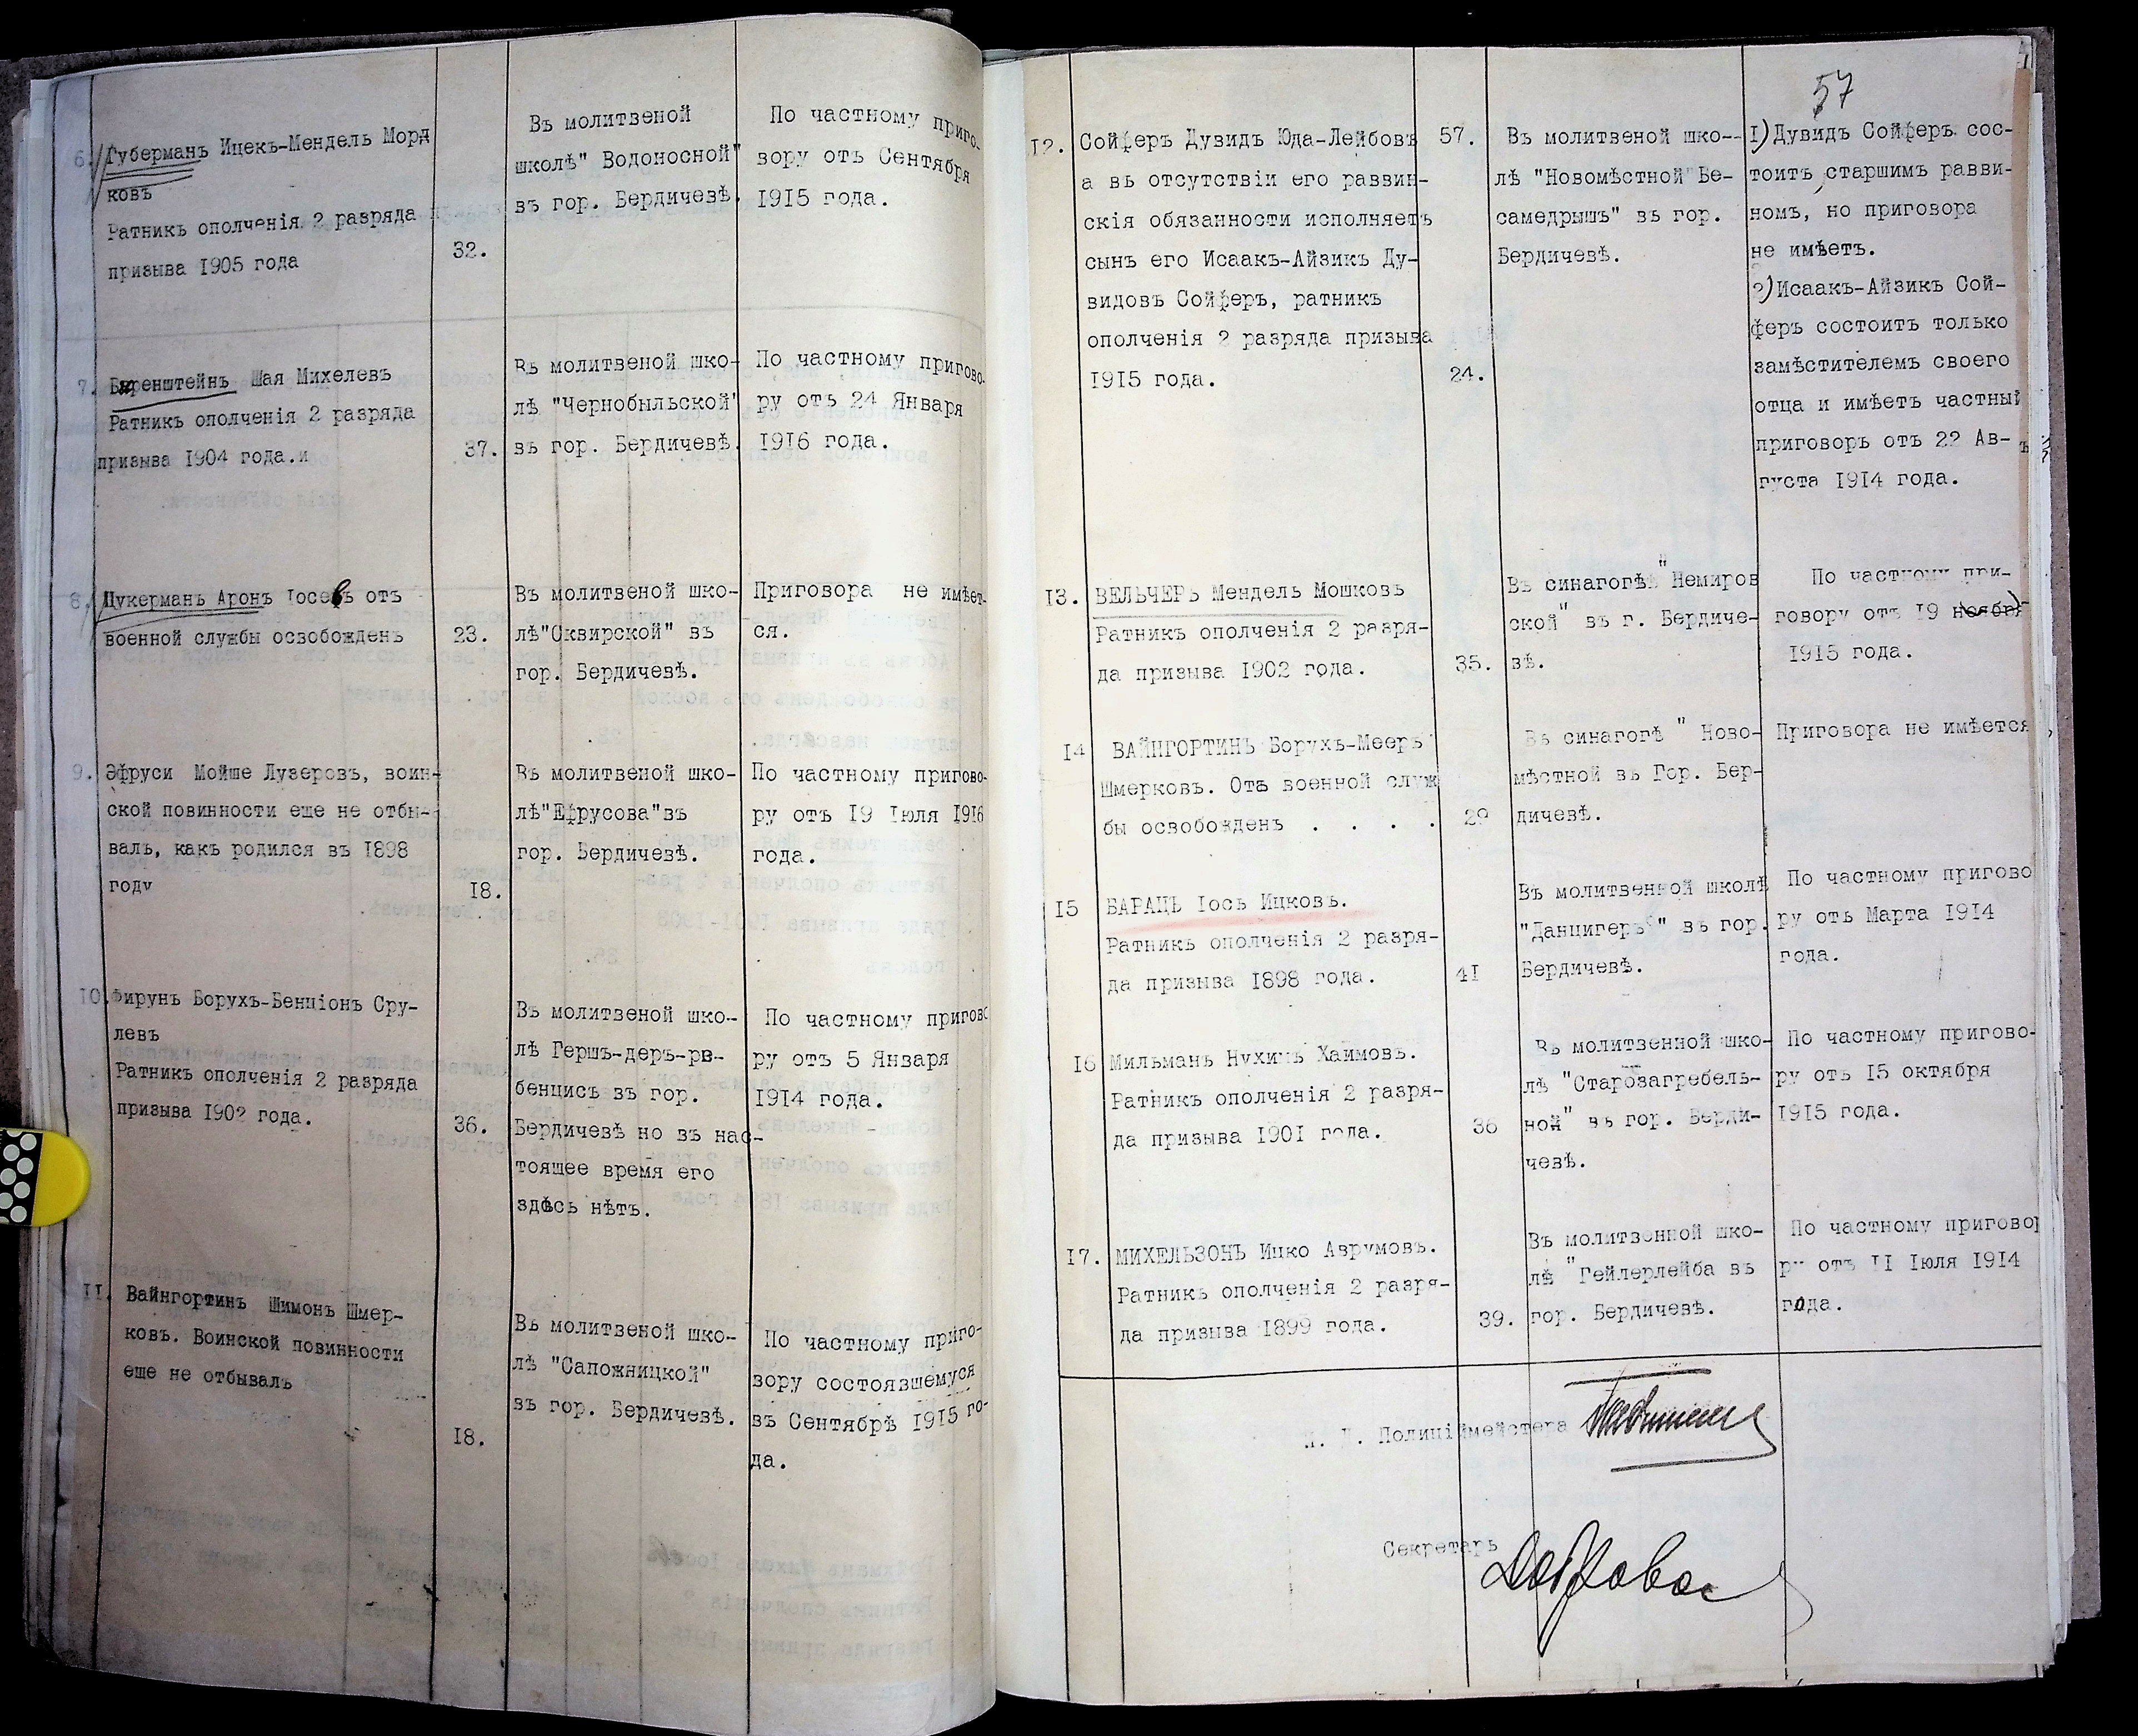 6. Губерманъ Ицекъ-Мендель Морд
ковъ
Ратникъ ополченія 2 разряда
призыва 1905 года
32.
Въ молитвеной
школѣ" Водоносной"
въ гор. Бердичевѣ.
По частному приго-
вору отъ Сентября
1915 года.
7. Беренштейнъ Шая Михелевъ
Ратникъ ополченія 2 разряда
призыва 1904 года.и
37.
Въ молитвеной шко-
лѣ "Чернобыльской"
въ гор. Бердичевѣ.
По частному пригово-
ру отъ 24 Января
1916 года.
8. Цукерманъ Аронъ Іосевъ отъ
военной службы освобожденъ
23.
Въ молитвеной шко-
лѣ"Сквирской" въ
гор. Бердичевѣ.
Приговора не имѣет-
ся.
9. Эфруси Мойше Лузеровъ, воин-
ской повинности еще не отбы-
валъ, какъ родился въ 1898
году
18.
Въ молитвеной шко-
лѣ"Ефрусова"въ
гор. Бердичевѣ.
По частному пригово-
ру отъ 19 Іюля 1916
года.
10. Фирунъ Борухъ-Бенціонъ Сру-
левъ
Ратникъ ополченія 2 разряда
призыва 1902 года.
36.
Въ молитвеной шко-
лѣ Гершъ-деръ-рв-
бенцисъ въ гор.
Бердичевѣ но въ нас-
тоящее время его
здѣсь нѣтъ.
По частному пригово
ру отъ 5 Января
1914 года.
11. Вайнгортинъ Шимонъ Шмер-
ковъ. Воинской повинности
еще не отбывалъ
18.
Въ молитвеной шко-
лѣ "Сапожницкой"
въ гор. Бердичевѣ.
По частному приго-
вору состоявшемуся
въ Сентябрѣ 1915 го-
да.
57
12. Сойферъ Дувидъ Юда-Лейбовъ
а въ отсутствіи его раввин-
скія обязанности исполняетъ
сынъ его Исаакъ-Айзикъ Ду-
видовъ Сойферъ, ратникъ
ополченія 2 разряда призыва
1915 года.
57.
24.
Въ молитвеной шко-
лѣ "Новомѣстной"Бе-
самедрышъ" въ гор.
Бердичевѣ.
1) Дувидъ Сойферъ сос-
тоитъ старшимъ равви-
номъ, но приговора
не имѣетъ.
2) Исаакъ-Айзикъ Сой-
феръ состоитъ только
замѣстителемъ своего
отца и имѣетъ частный
приговоръ отъ 22 Ав-
густа 1914 года.
13. ВЕЛЬЧЕРЪ Мендель Мошковъ
Ратникъ ополченія 2 разря-
да призыва 1902 года.
35.
Въ синагогѣ "Немиров
ской" въ г. Бердиче-
вѣ.
По частному при-
говору отъ 19 ноября
1915 года.
14 ВАЙНГОРТИНЪ Борухъ-Мееръ
Шмерковъ. Отъ военной служ
бы освобожденъ . . . .
29
Въ синагогѣ " Ново-
мѣстной въ Гор. Бер-
дичевѣ.
Приговора не имѣется
15 БАРАЦЪ Іось Ицковъ.
Ратникъ ополченія 2 разря-
да призыва 1898 года.
41
Въ молитвенной школѣ
"Данцигеръ" въ гор.
Бердичевѣ.
По частному пригово
ру отъ Марта 1914
года.
16 Мильманъ Нухимъ Хаимовъ.
Ратникъ ополченія 2 разря-
да призыва 1901 года.
36
Въ молитвенной шко-
лѣ "Старозагребель-
ной" въ гор. Берди-
чевѣ.
По частному пригово-
ру отъ 15 октября
1915 года.
17. МИХЕЛЬЗОНЪ Ицко Аврумовъ.
Ратникъ ополченія 2 разря-
да призыва 1899 года.
39.
Въ молитвенной шко-
лѣ "Гейлерлейба въ
гор. Бердичевѣ.
По частному приговор
ру отъ 11 Іюля 1914
года.
И. Д. Полиціймейстера
Секретарь